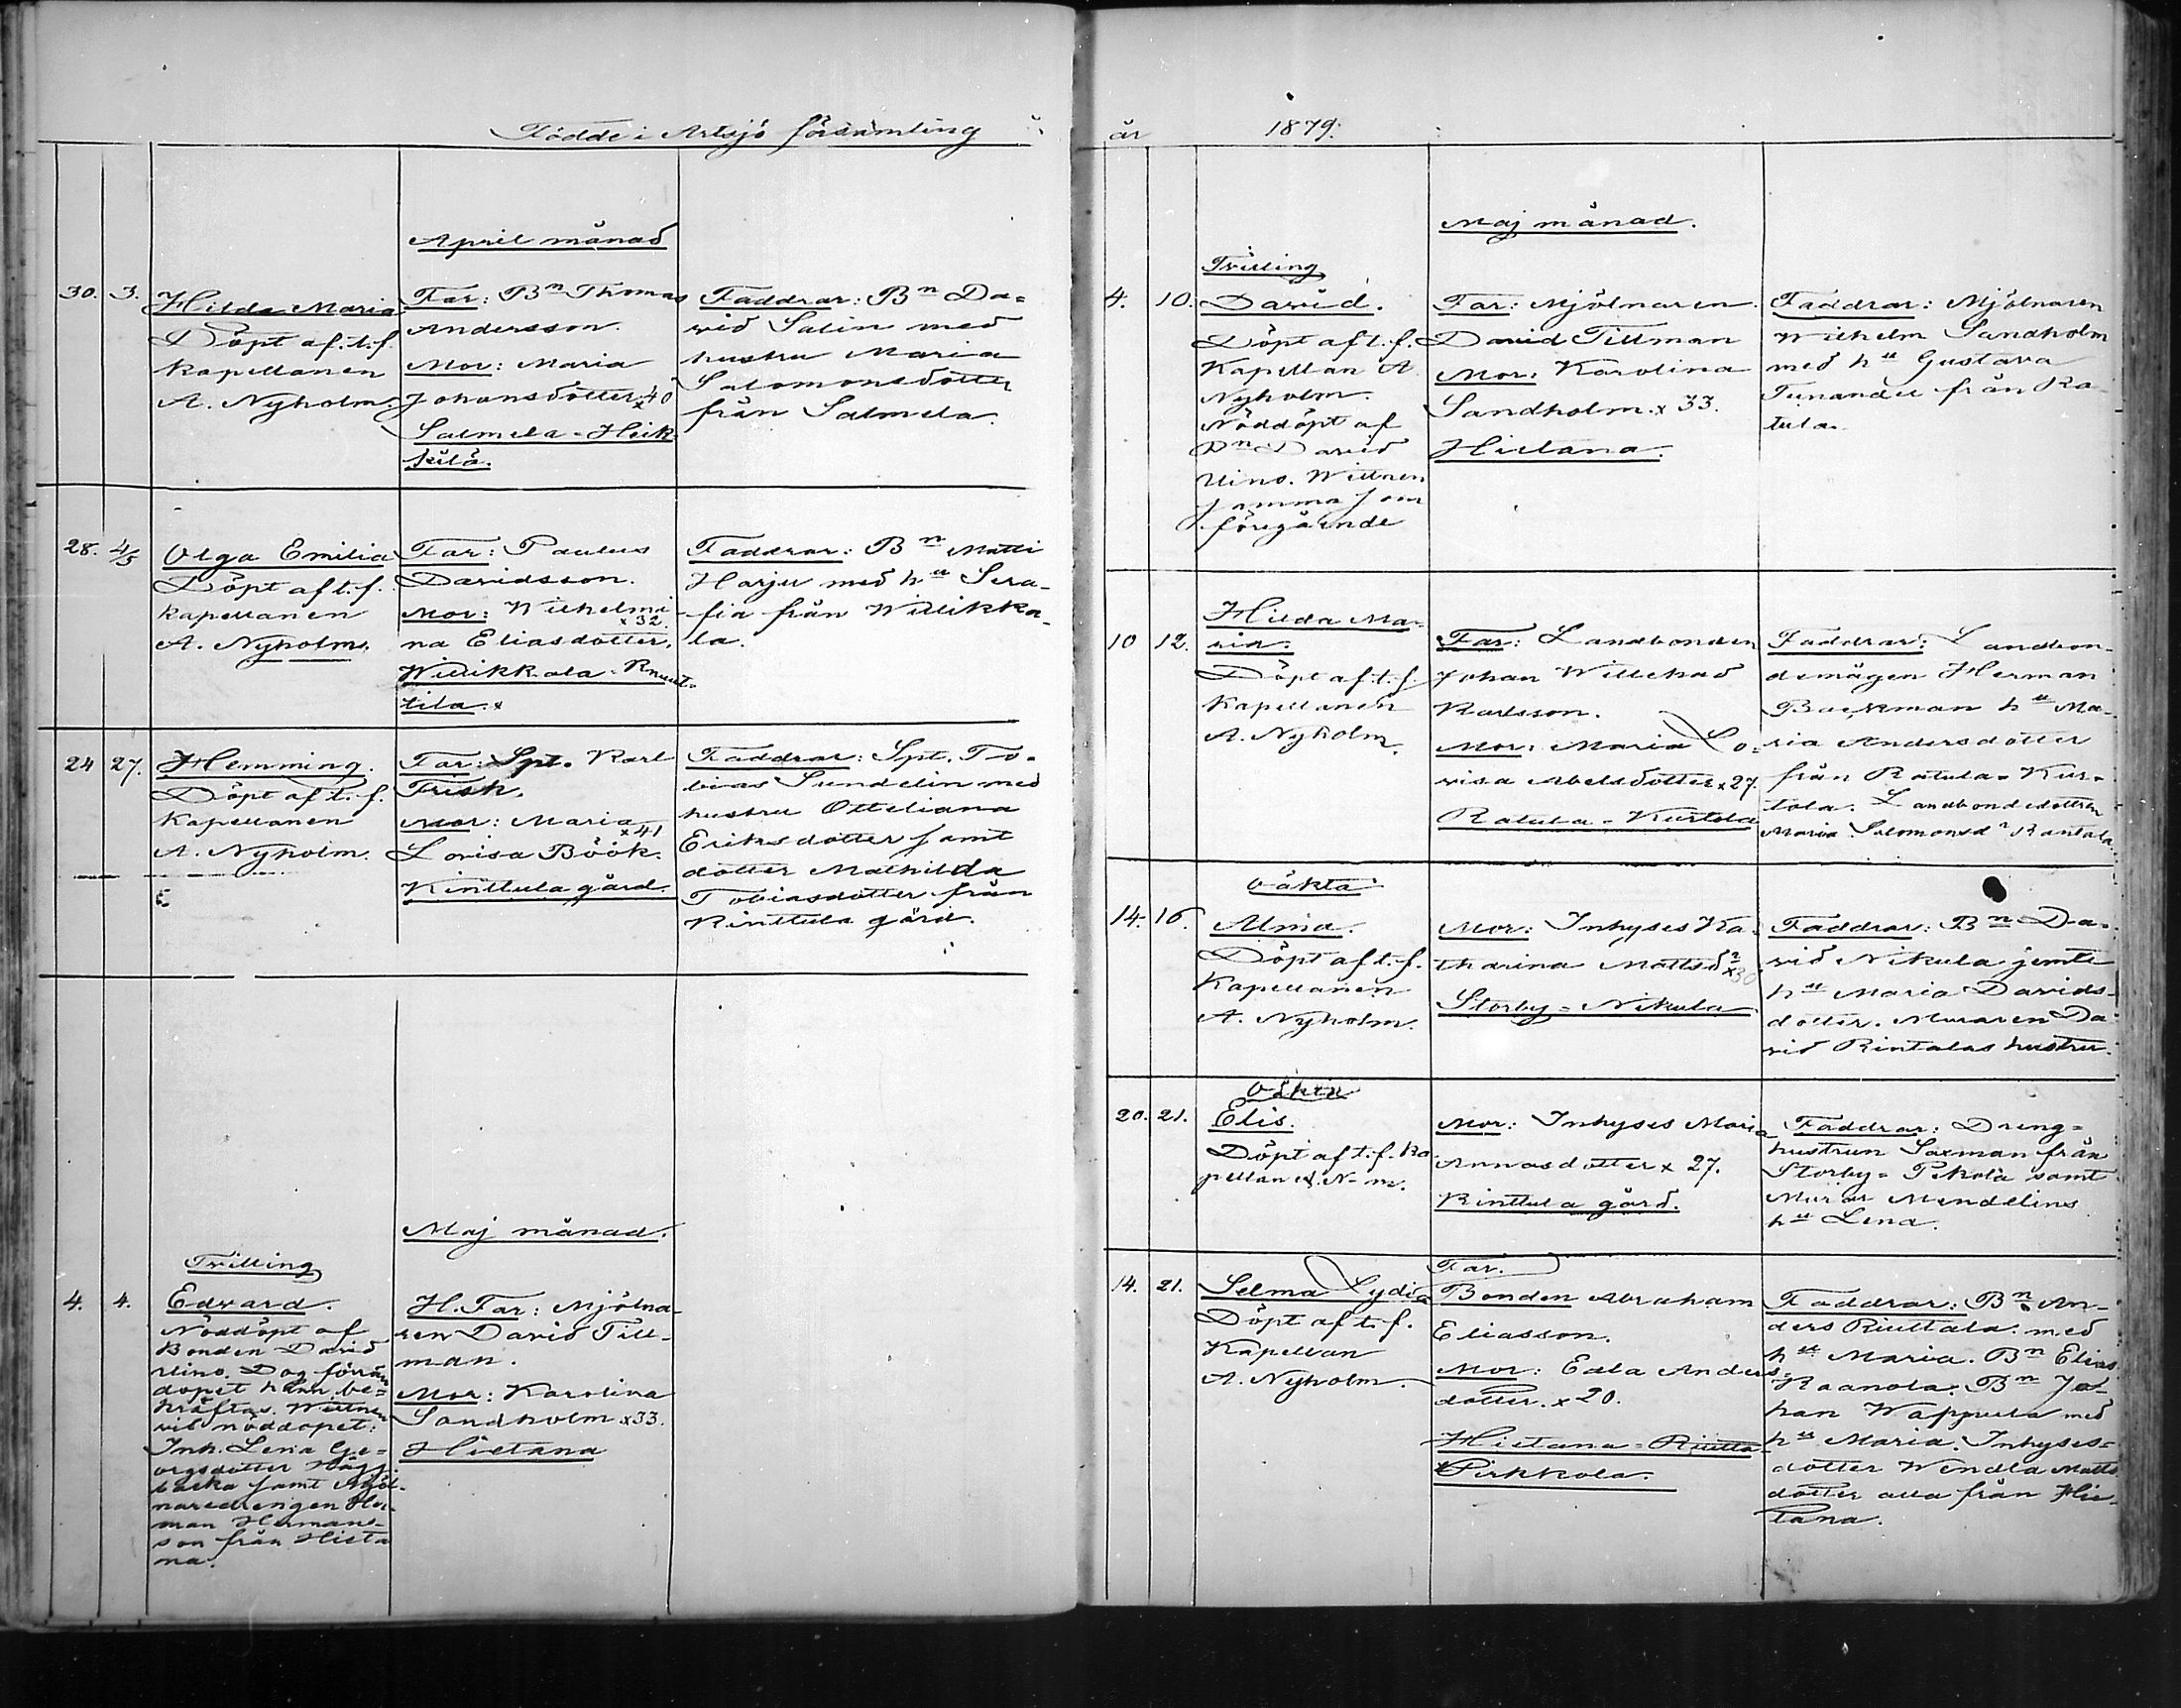 Födde i Artsjö församling
år 1879.
April månad
30. 3.
Hilda Maria
Döpt af t.f.
Kapellanen
A. Nyholm.
Far: Bn Thomas
Andersson.
Mor: Maria
Johansdotter x 40
Salmela-Heik-
kilä.
Faddrar: Bn Da-
vid Salin med
hustru Maria
Salomonsdotter
från Salmela.
28. 4/5
Olga Emilia
Döpt af t.f.
Kapellanen
A. Nyholm.
Far: Paulus
Davidsson.
Mor: Wilhelmi-
x 32.
na Eliasdotter.
Willikkala-Knuut-
tila.
Faddrar: Bn Matti
Harju med hu Sera-
fia från Willikka-
la.
24 27.
Hemming.
Döpt af t.f.
Kapellanen
A. Nyholm.
Far: Spt. Karl
Frisk.
Mor: Maria
x 41
Lovisa Böök.
Kinttula gård.
Faddrar: Spt. To-
bias Sundelin med
hustru Otteliana
Eriksdotter samt
dotter Mathilda
Tobiasdotter från
Kinttula gård.
Maj månad.
Tvilling
4. 4.
Edvard.
Nöddöpt af
Bonden David
Uino. Dog förrän
dopet hann be-
kräftas. Wittnen
vid nöddopet:
Inh. Lena Ge-
orgsdotter
backa samt Mjöl-
naredrengen Her-
man Hermans-
son från Hieta-
na.
H. Far: Mjölna-
ren David Till-
man.
Mor: Karolina
Sandholm x 33.
Hietana
Maj månad.
Tvilling
4. 10.
David.
Döpt af t.f.
Kapellan A.
Nyholm.
Nöddöpt af
Bn David
Uino. Wittnen
samma som
föregående
Far: Mjölnaren
David Tillman
Mor: Karolina
Sandholm. x 33.
Hietana.
Faddrar: Mjölnaren
Wilhelm Sandholm
med hu Gustava
från Ra-
tula.
10 12.
Hilda Ma-
ria.
Döpt af t.f.
Kapellanen
A. Nyholm.
Far: Landbonden
Johan Willehad
Karlsson.
Mor: Maria Lo-
visa Abelsdotter x 27.
Ratula-Kurtola
Faddrar: Landbon-
demågen Herman
Backman hu Ma-
ria Andersdotter
från Ratula-Kur-
tola. Landbondedottren
Maria Salomonsdr Rantala
Oäkta
14. 16.
Alma.
Döpt af t.f.
Kapellanen
A. Nyholm.
Mor: Inhyses Ka-
tharina Mattsdr x 30
Storby-Nikula
Faddrar: Bn Da-
vid Nikula jemte
hu Maria Davids-
dotter. Muraren Da-
vid Rintalas hustru.
Oäkta
20. 21.
Elis.
Döpt af t.f. Ka-
pellan A. N-m.
Mor: Inhyses Maria
Annasdotter x 27.
Kinttula gård.
Faddrar: Dreng-
hustrun Saxman från
Storby-Pekola samt
Murar Mendelins
hu Lena.
14. 21.
Selma Lydia
Döpt af t.f.
Kapellan
A. Nyholm.
Far.
Bonden Abraham
Eliasson.
Mor: Edla Anders-
dotter. x 20.
Hietana-Riutta-
Pirkkola.
Faddrar: Bn An-
ders Riuttala med
hu Maria. Bn Elias
Kaanola. Bn Jo-
han Wappula med
hu Maria. Inhyses-
dotter Wendla Matts-
dotter alla från Hie-
tana.